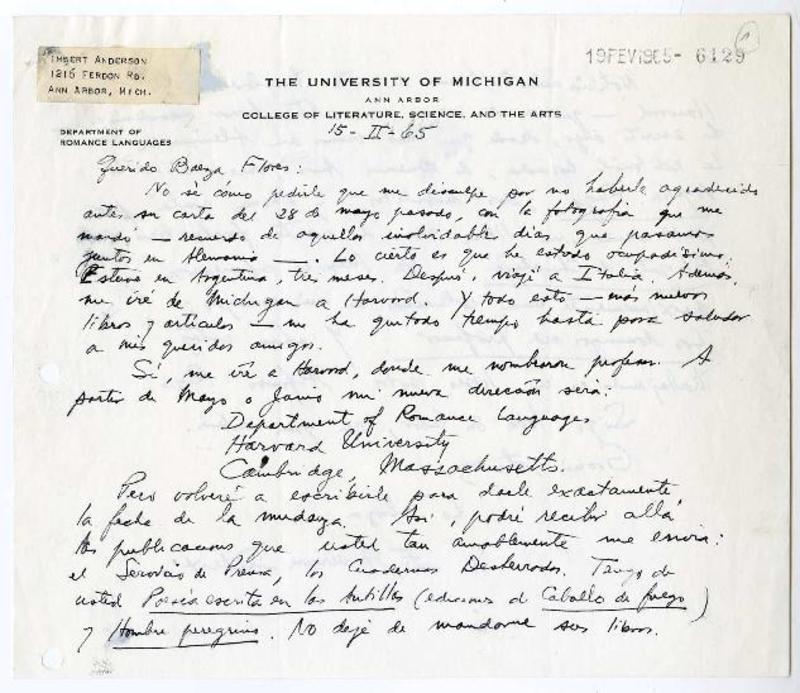 19 FEV 1965 - 6129
IMBERT ANDERSON
1215 FERDON RD.
ANN ARBOR, MICH.
THE UNIVERSITY OF MICHIGAN
ANN ARBOR
COLLEGE OF LITERATURE, SCIENCE, AND THE ARTS
DEPARTMENT OF
ROMANCE LANGUAGES
15-II-65
Querido Baeza Flores:
No sé cómo pedirle que me disculpe por no haberle agradecido
antes su carta del 28 de mayo pasado, con la fotografía que me
mandó — recuerdo de aquellos inolvidables días que pasamos
juntos en Alemania —. Lo cierto es que he estado ocupadísimo.
Estuve en Argentina, tres meses. Después, viajé a Italia. Además,
me iré de Michigan a Harvard. Y todo esto — más nuevos
libros y artículos — me ha quitado tiempo hasta para saludar
a mis queridos amigos.
Sí me iré a Harvard, donde me nombraron profesor. A
partir de Mayo o Junio mi nueva dirección será:
Department of Romance Languages
Harvard University
Cambridge, Massachusetts.
Pero volveré a escribirle para darle exactamente
la fecha de la mudanza. Así, podré recibir allá
las publicaciones que usted tan amablemente me envía:
el Servicio de Prensa, los Cuadernos Desterrados. Tengo de
usted Poesía escrita en las Antillas (ediciones de Caballo de fuego)
y Hombre peregrino. No deje de mandarme sus libros.